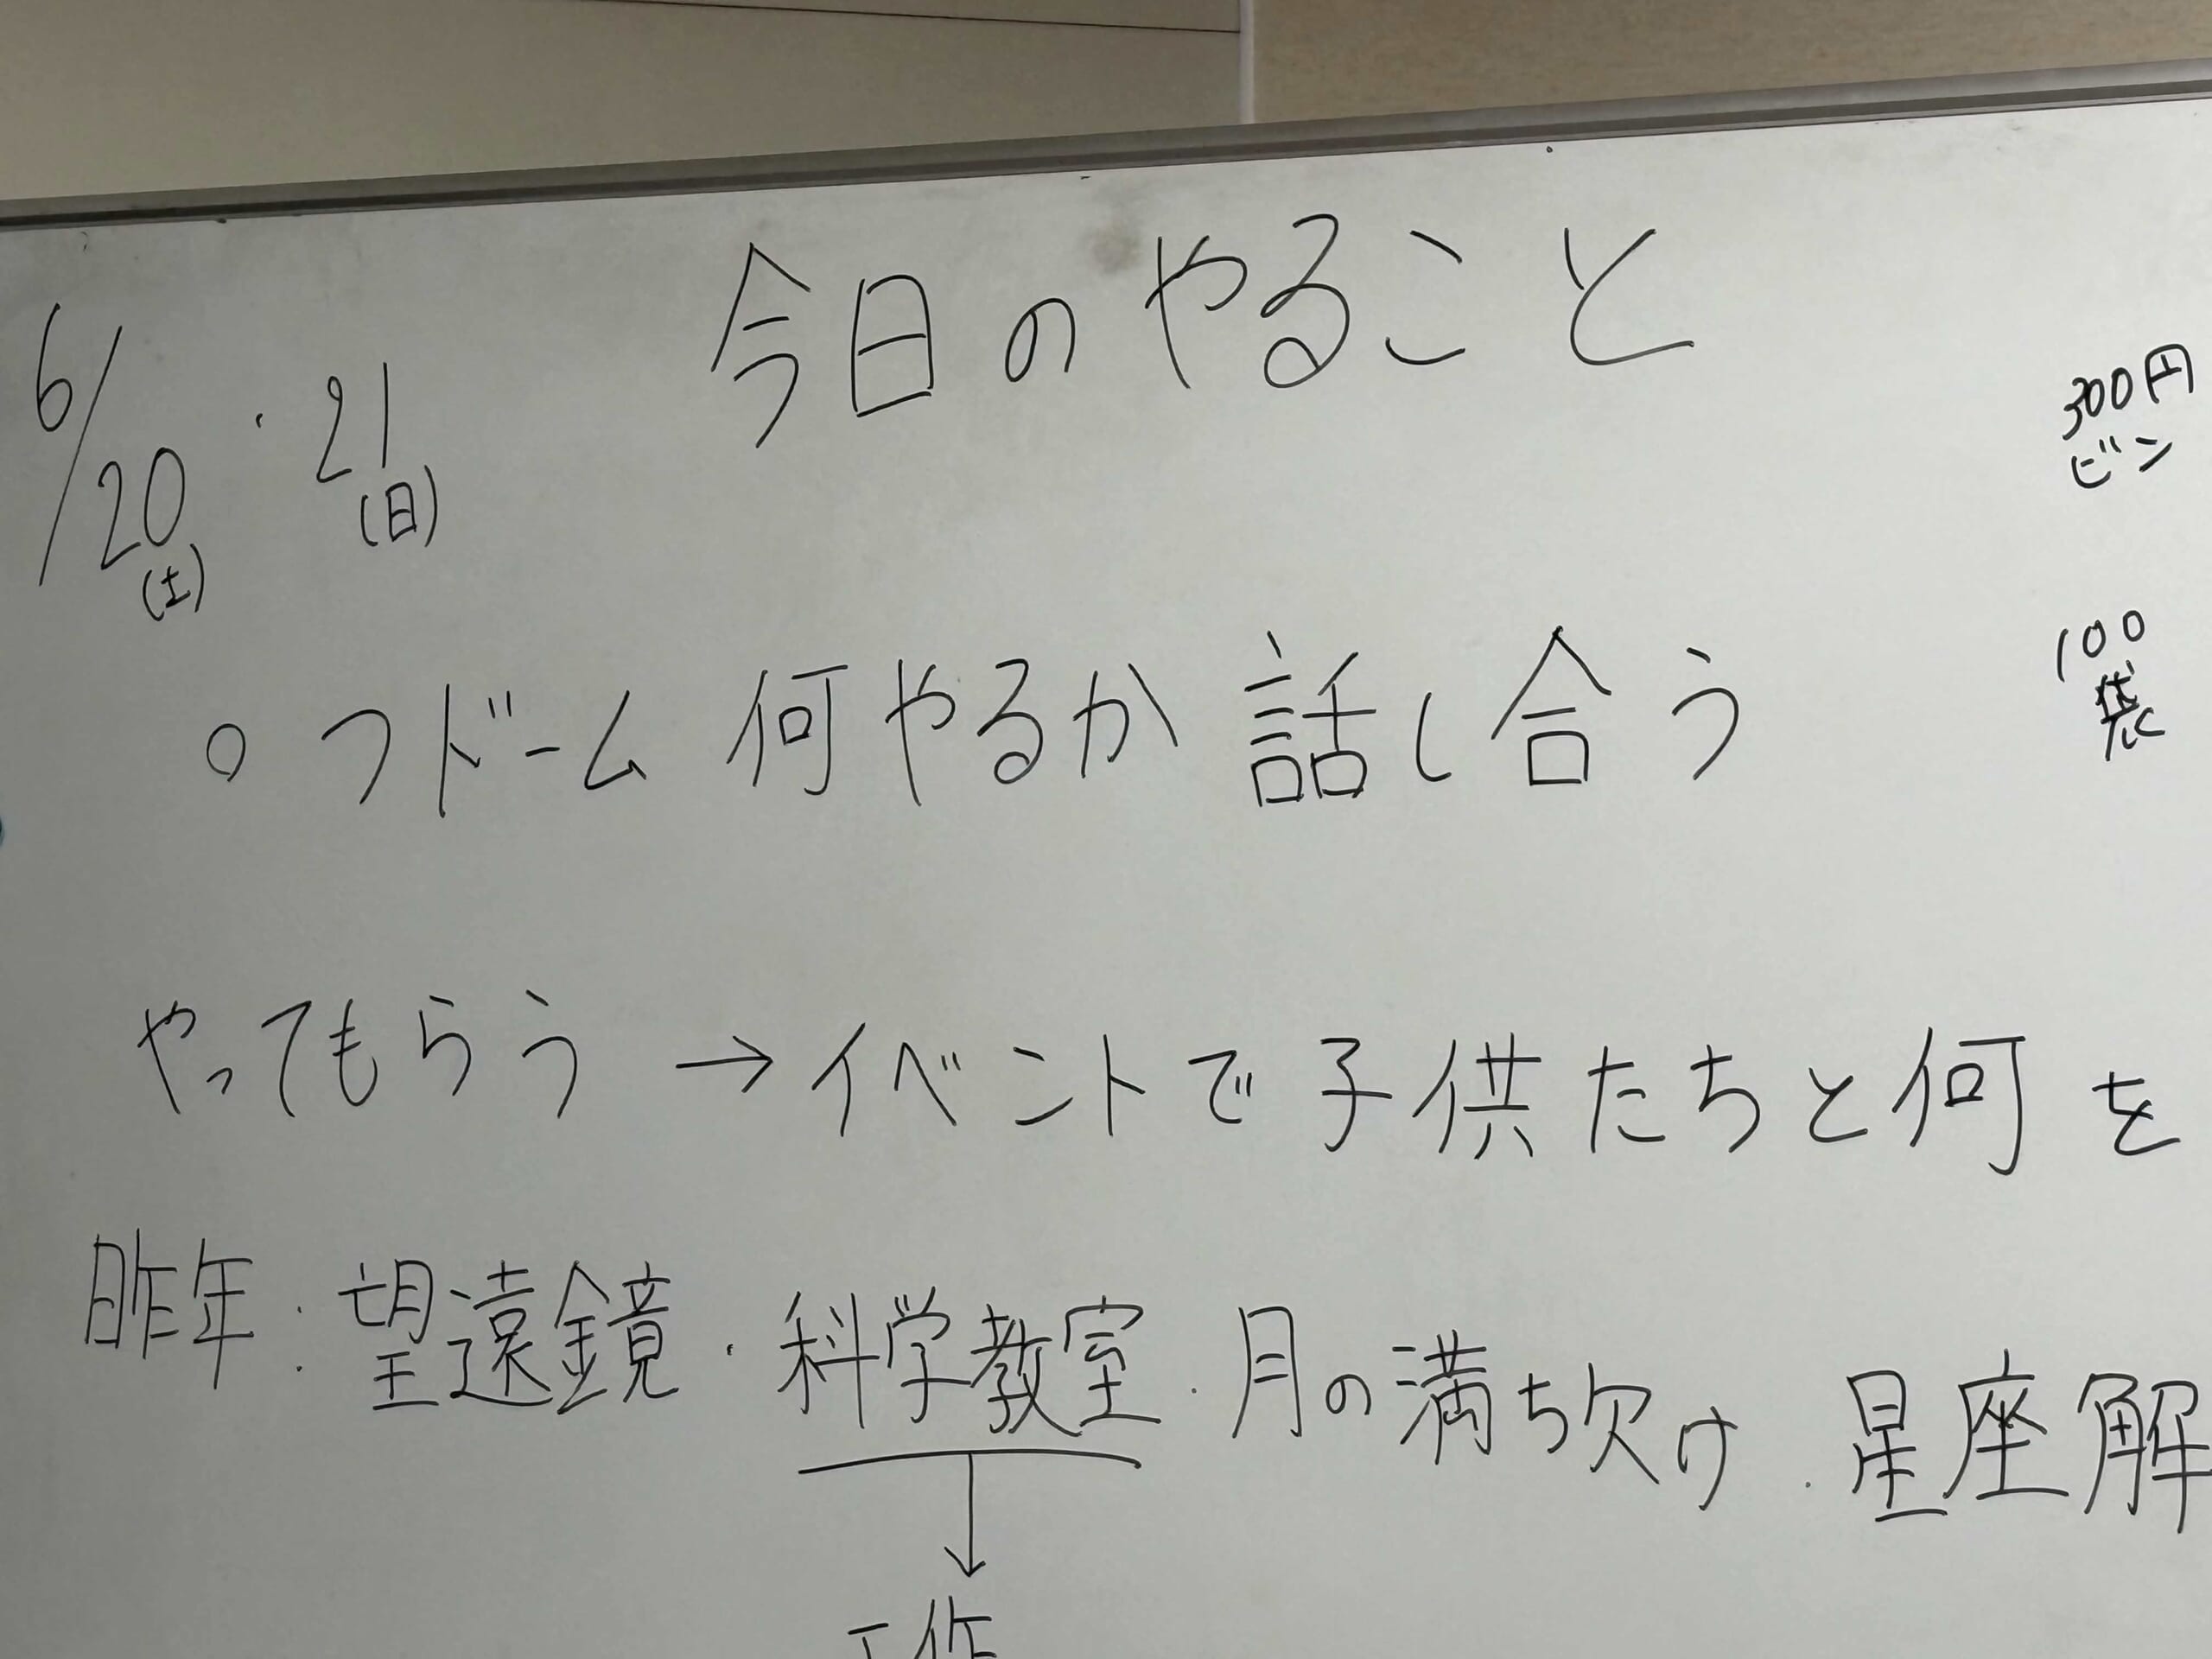 今日のやること
6/20(土)・21(日)
300円
ビン
○ フドーム 何やるか 話し合う
100
袋
やってもらう → イベントで子供たちと何を
昨年：望遠鏡・科学教室・月の満ち欠け・星座解
↓
工作